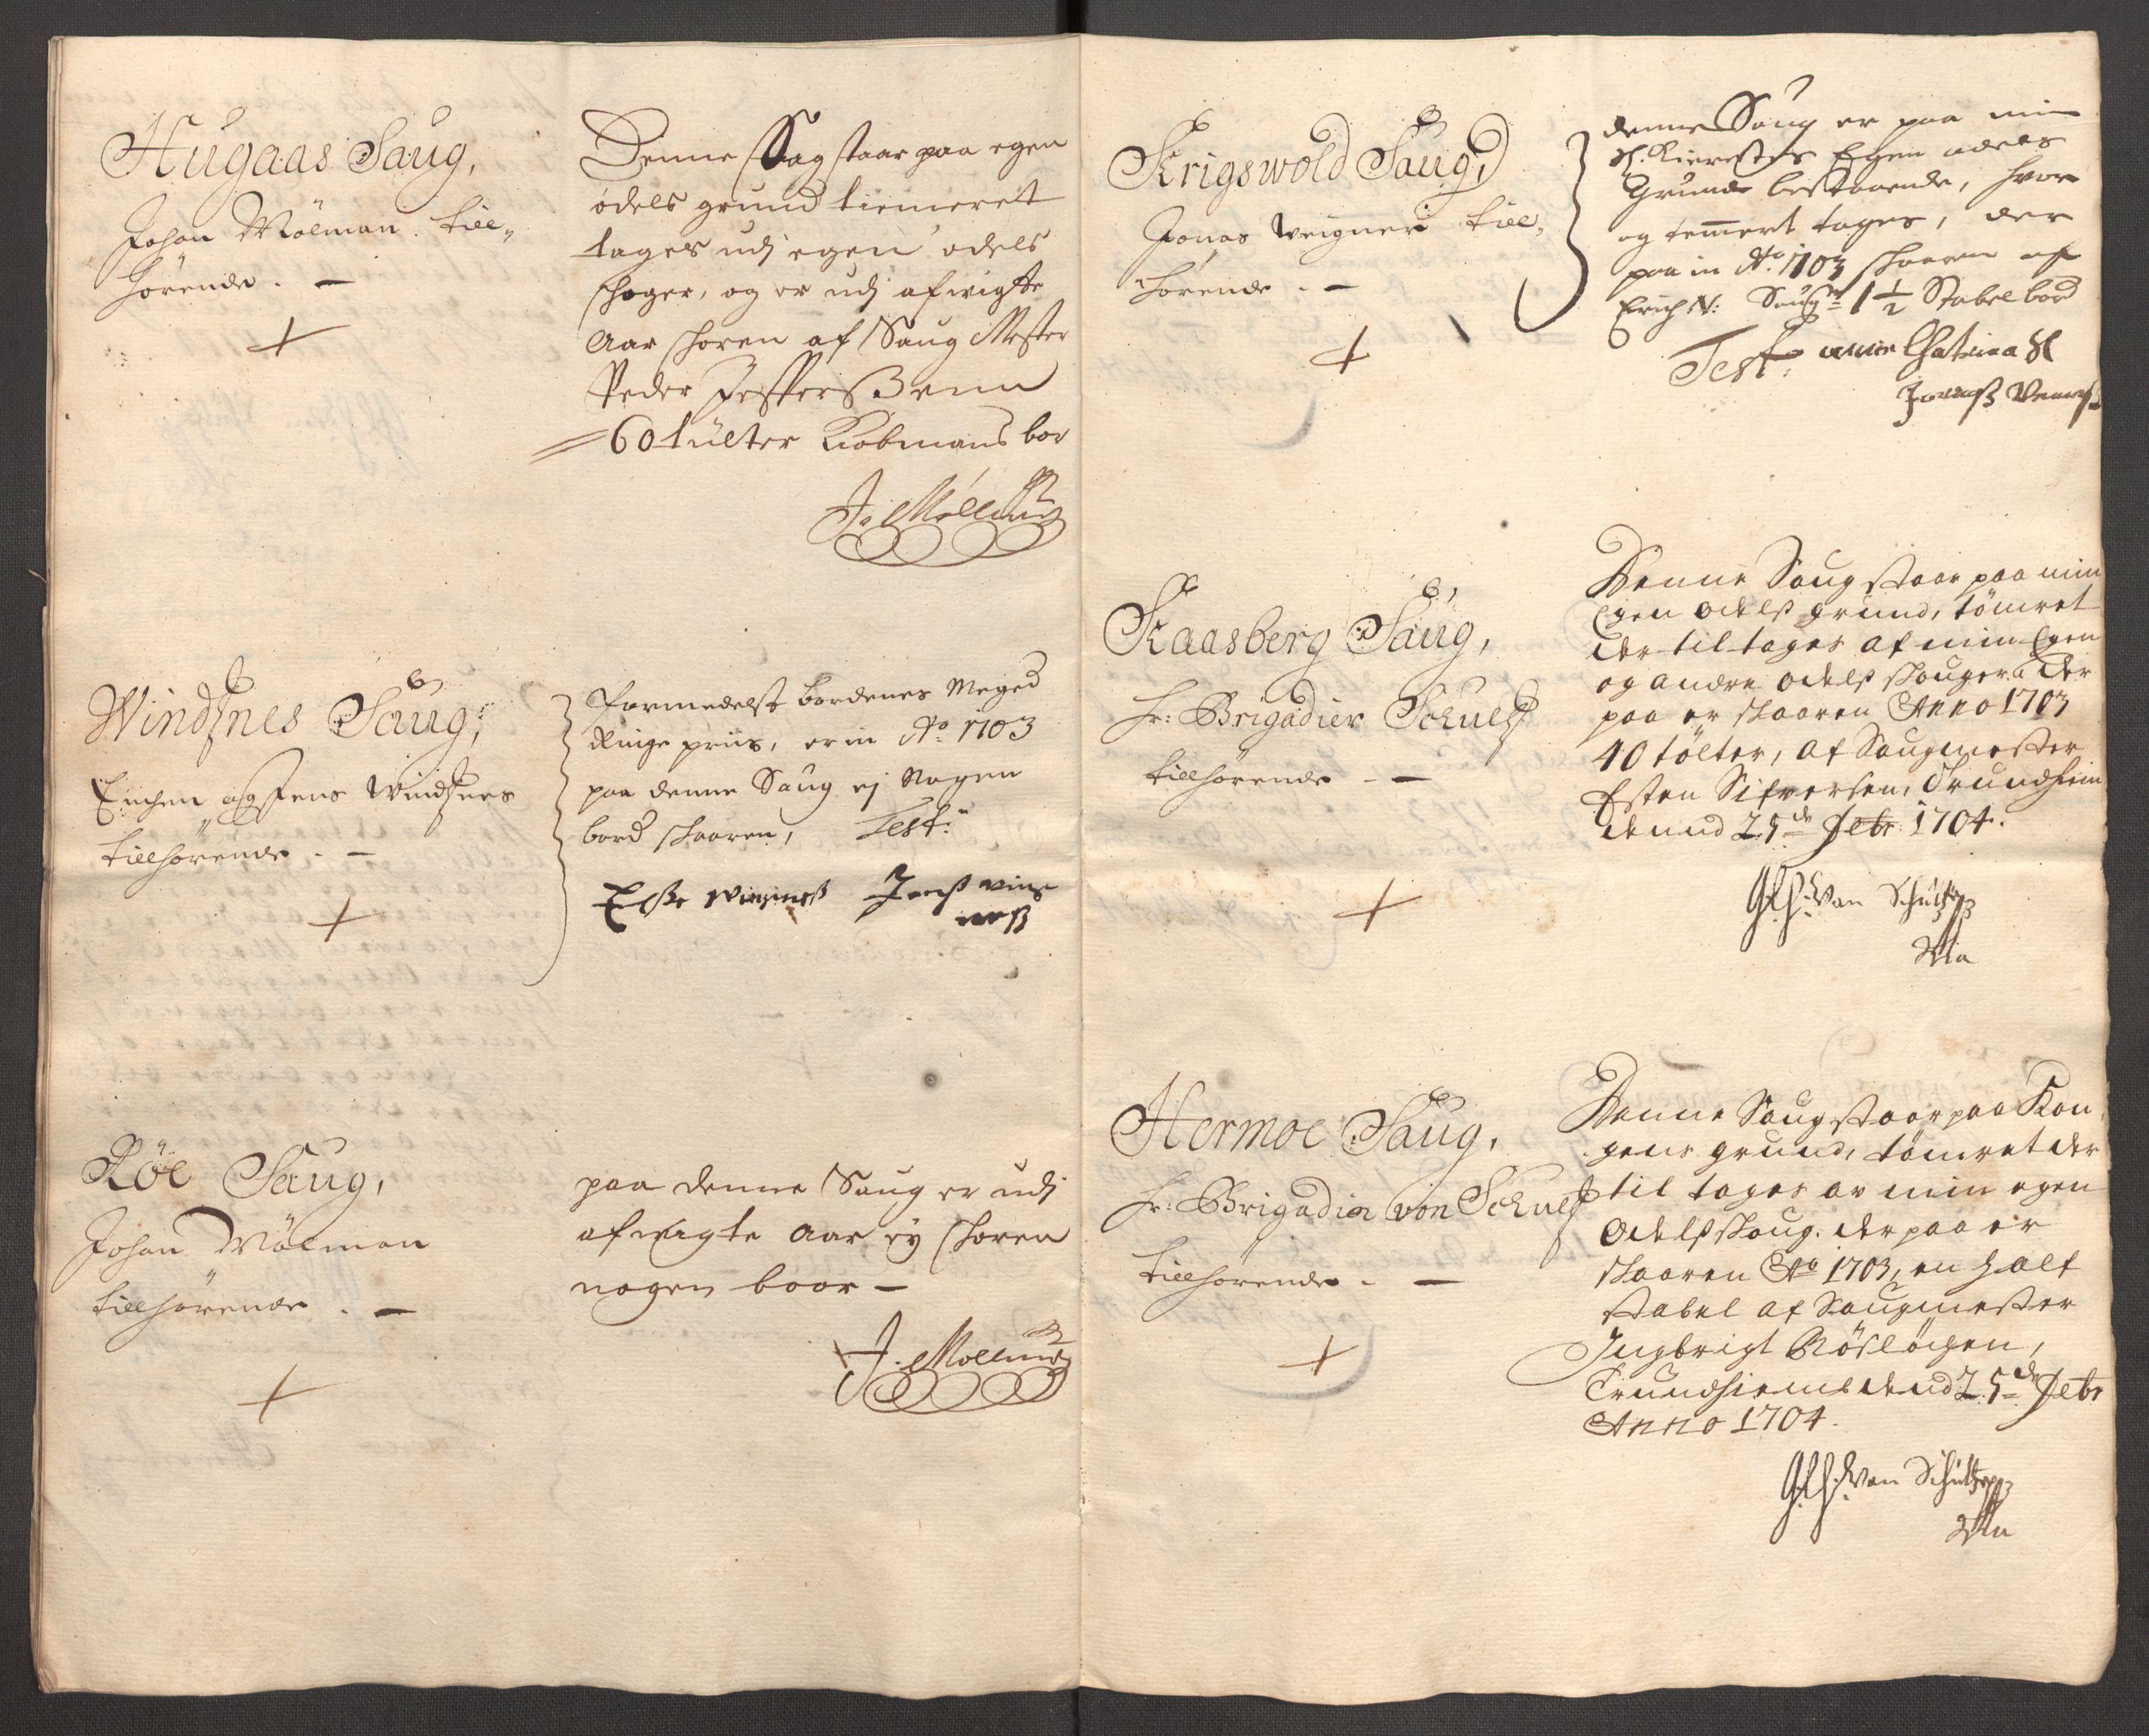 Hugaas Saug,
Johan Mølman till„
hørende. —
Denne Sag staar paa egen
odels grund tiemerett
tages udj egen odels
schoger, og er udj afwigte
Aar schoren af Saug Mester
Peder Jespersßenn
60 tulter Kiobmans bor
J. Møllman
Windsnes Saug,
Enchen afg Jens Windsnes
tillhørende. —
Formedelst bordenes Meged
Ringe priis, er in Ao. 1703
paa denne Saug ej Nogen
bord skaaren, Test:
Else
Røe Saug,
Johan Mølman
tillhørende. —
paa denne Saug er udj
afwigte Aar ey schoren
nogen boor —
J. Mollman
Krigswold Saug,
Jonas Weigner till„
hørende. —
denne Saug er paa min
Sl. Kierestes Egen odels
Grund bestaaende, hvor
og temmert tages, der
paa in Ao. 1703 skaaren af
Erich N: Saugm 1 1/2 Stabel bord
Test. anne Chatrina Sl
Kaasberg Saug,
Hr: Brigadier Schults
tillhørende. —
Denne Saug staar paa min
Egen odelß grund, tømret
der til tages af min Egen
og andre odelß skouger, der
paa er skaaren Anno 1703
40 tølter, af Saugmester
Esten Sifversen, Trundhiem
dennd 25de Febr: 1704.
von Schultz
Hermoe Saug,
Hr: Brigadier von Schults
tillhørende. —
Denne Saug staar paa Kon,
gens grund, tømret der
til tages av min egen
Odelßskoug. der paa er
skaaren Ao 1703, en half
stabel af Saugmester
Ingbrigt Røsløgen,
Trundhiem dend 25de Febr
Anno 1704.
von Schultz